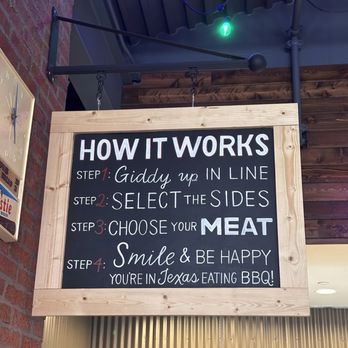 HOW IT WORKS
STEP 1: Giddy up IN LINE
STEP 2: SELECT THE SIDES
STEP 3: CHOOSE YOUR MEAT
STEP 4: Smile & BE HAPPY
YOU'RE IN Texas EATING BBQ!